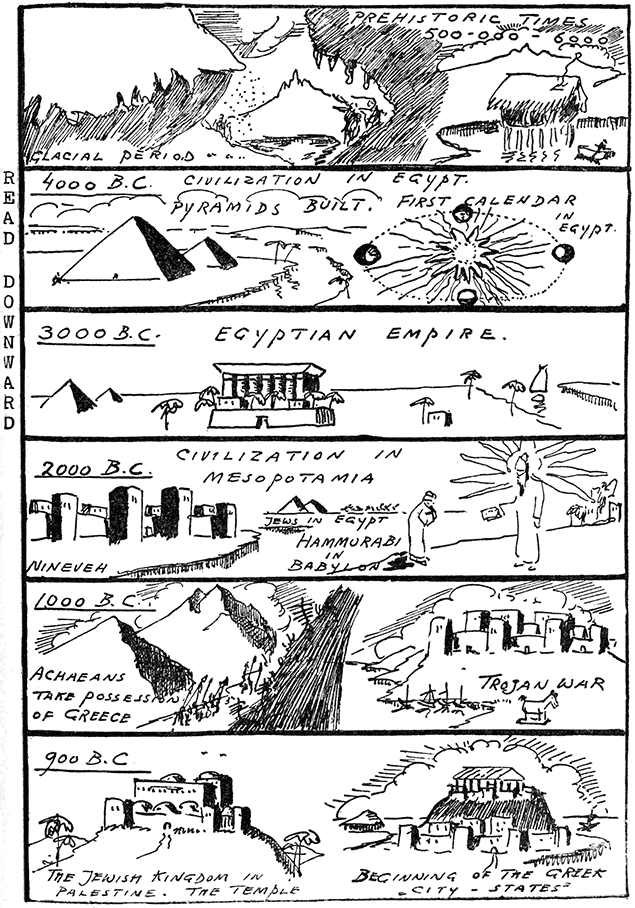 PREHISTORIC TIMES
500-000 - 6000
GLACIAL PERIOD
READ DOWNWARD
4000 B.C. CIVILIZATION IN EGYPT.
PYRAMIDS BUILT. FIRST CALENDAR
IN
EGYPT.
3000 B.C. EGYPTIAN EMPIRE.
2000 B.C. CIVILIZATION IN
MESOPOTAMIA
JEWS IN EGYPT
HAMMURABI
IN
BABYLON
NINEVEH
1000 B.C.
ACHAEANS
TAKE POSSESSION
OF GREECE
TROJAN WAR
900 B.C
THE JEWISH KINGDOM IN
PALESTINE. THE TEMPLE
BEGINNING OF THE GREEK
"CITY-STATES"